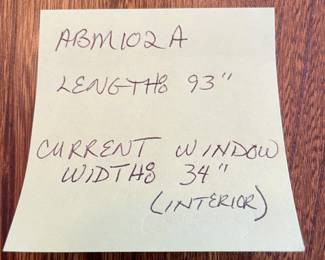 ABM102A
LENGTH: 93"
CURRENT WINDOW
WIDTH: 34"
(INTERIOR)